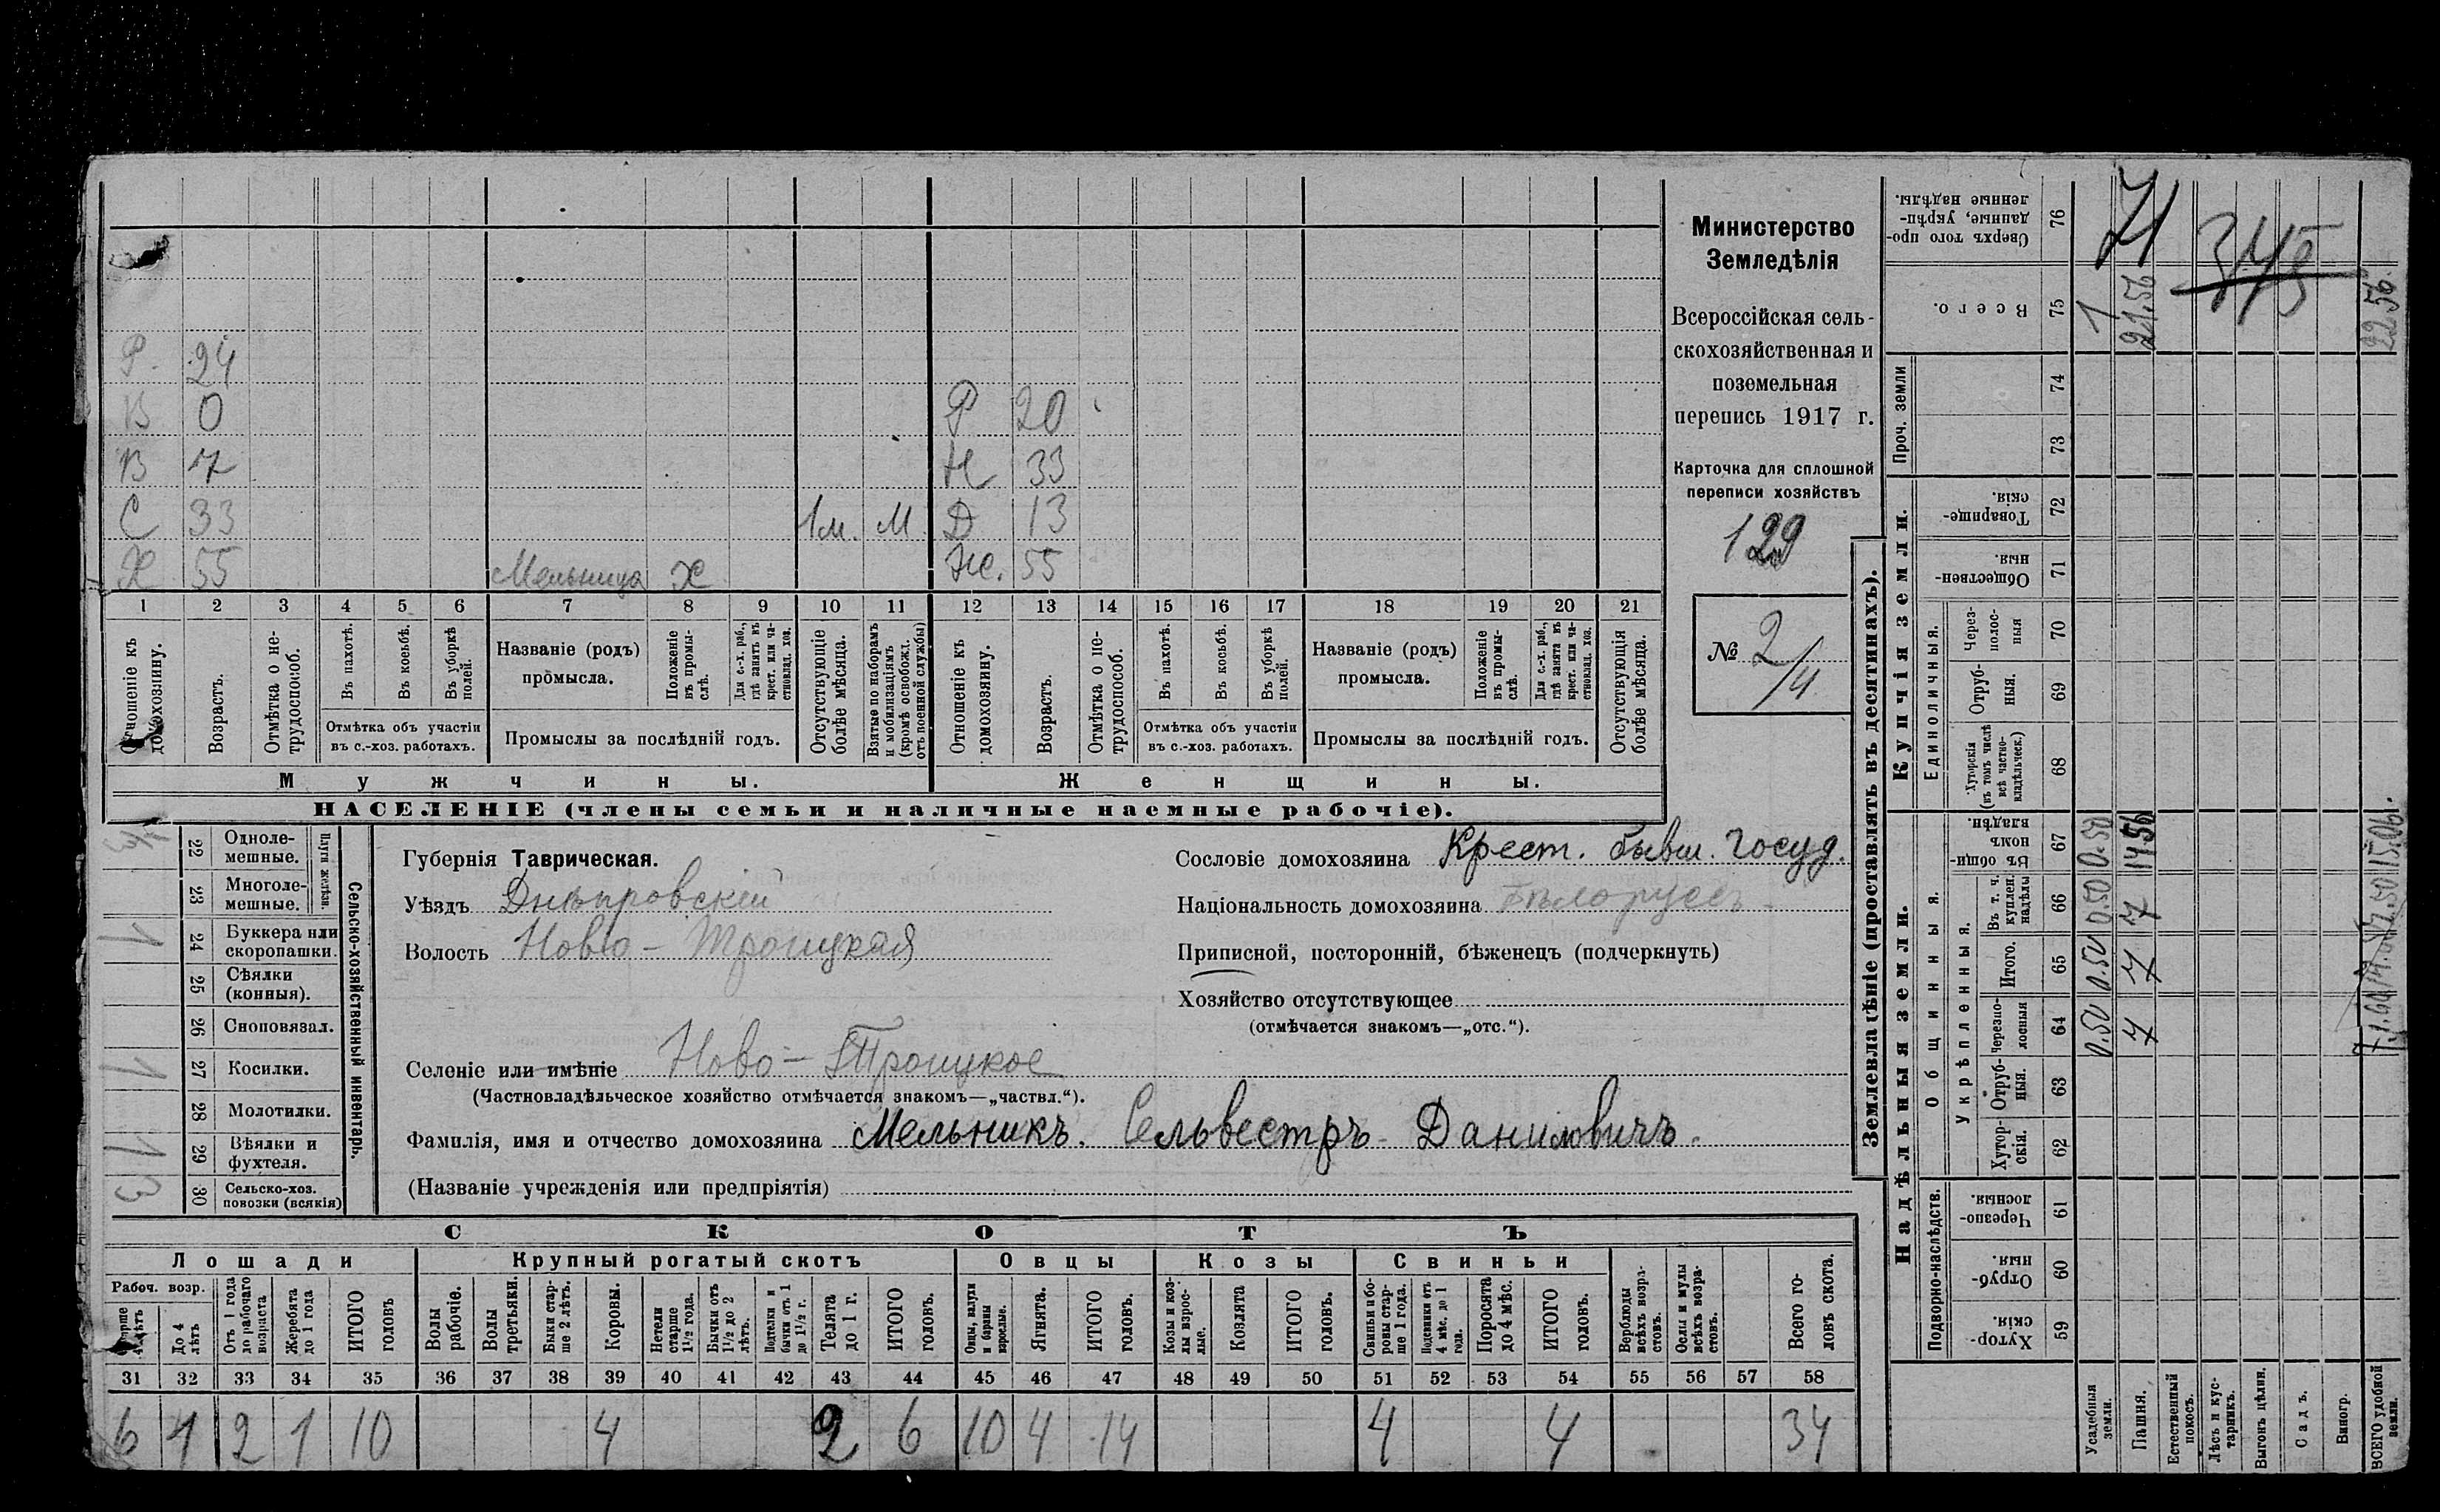 Р. 24
В 0 Р 20
В 7 Н 33
С 33 1м. М Д 13
Х 55 Мельница Х Ж. 55
1 2 3 4 5 6 7 8 9 10 11 12 13 14 15 16 17 18 19 20 21
Отношеніе къ домохозяину.
Возрастъ.
Отмѣтка о нетрудоспособ.
Въ пахотѣ.
Въ косьбѣ.
Въ уборкѣ полей.
Отмѣтка объ участіи въ с.-хоз. работахъ.
Названіе (родъ) промысла.
Положеніе въ промыслѣ.
Для с.-х. раб., гдѣ занятъ въ крест. или частновлад. хоз.
Промыслы за послѣдній годъ.
Отсутствующіе болѣе мѣсяца.
Взятые по наборамъ и мобилизаціямъ (кромѣ освобожд. отъ военной службы)
Отношеніе къ домохозяину.
Возрастъ.
Отмѣтка о нетрудоспособ.
Въ пахотѣ.
Въ косьбѣ.
Въ уборкѣ полей.
Отмѣтка объ участіи въ с.-хоз. работахъ.
Названіе (родъ) промысла.
Положеніе въ промыслѣ.
Для с.-х. раб., гдѣ занята въ крест. или частновлад. хоз.
Промыслы за послѣдній годъ.
Отсутствующія болѣе мѣсяца.
Мужчины. Женщины.
НАСЕЛЕНІЕ (члены семьи и наличные наемные рабочіе).
Министерство
Земледѣлія
Всероссійская сель-
скохозяйственная и
поземельная
перепись 1917 г.
Карточка для сплошной
переписи хозяйствъ
129
№ 2/4
22 Одноле-мешные.
23 Многоле-мешные.
Плуги желѣзн.
1 24 Буккера или скоропашки.
25 Сѣялки (конныя).
26 Сноповязал.
1 27 Косилки.
28 Молотилки.
1 29 Вѣялки и фухтеля.
3 30 Сельско-хоз. повозки (всякія)
Сельско-хозяйственный инвентарь.
Губернія Таврическая.
Уѣздъ Днѣпровскій
Волость Ново-Троицкая
Селеніе или имѣніе Ново-Троицкое
(Частновладѣльческое хозяйство отмѣчается знакомъ—„частвл.“).
Фамилія, имя и отчество домохозяина Мельникъ. Сельвестръ Даниловичъ.
(Названіе учрежденія или предпріятія)
Сословіе домохозяина Крест. бывш. госуд.
Національность домохозяина Бѣлоруссъ
Приписной, посторонній, бѣженецъ (подчеркнуть)
Хозяйство отсутствующее
(отмѣчается знакомъ—„отс.“).
СКОТЪ
Лошади Крупный рогатый скотъ Овцы Козы Свиньи
Рабоч. возр.
Старше 4 лѣтъ
До 4 лѣтъ
Отъ 1 года до рабочаго возраста
Жеребята до 1 года
ИТОГО головъ
Волы рабочіе.
Волы третьяки.
Быки старше 2 лѣтъ.
Коровы.
Нетели старше 1½ года.
Бычки отъ 1½ до 2 лѣтъ.
Подтелки и бычки отъ 1 до 1½ г.
Телята до 1 г.
ИТОГО головъ.
Овцы, валухи и бараны взрослые.
Ягнята.
ИТОГО головъ.
Козы и козлы взрослые.
Козлята
ИТОГО головъ.
Свиньи и боровы старше 1 года.
Подсвинки отъ 4 мѣс. до 1 года.
Поросята до 4 мѣс.
ИТОГО головъ.
Верблюды всѣхъ возрастовъ.
Ослы и мулы всѣхъ возрастовъ.
Всего головъ скота.
31 32 33 34 35 36 37 38 39 40 41 42 43 44 45 46 47 48 49 50 51 52 53 54 55 56 57 58
6 1 2 1 10 4 2 6 10 4 14 4 4 34
Землевладѣніе (проставлять въ десятинахъ).
Надѣльныя земли. Купчія земли. Проч. земли
Подворно-наслѣдств. Общинныя. Укрѣпленныя. Единоличныя.
Сверхъ того проданные, укрѣпленные надѣлы. 76
Всего. 75 1 21.56 22 56
74
73
Товарищескія. 72
Общественныя. 71
Черезполосныя 70
Отрубныя. 69
Хуторскія (въ томъ числѣ всѣ частновладѣльческ.) 68
Въ общинномъ владѣн. 67 0.50 14.56 15.06
Въ т. ч. куплен. надѣлы 66 0.50 7 7.50
Итого. 65 0.50 7
Черезполосныя 64 0.50 7
Отрубныя. 63
Хуторскія. 62
Черезполосныя. 61
Отрубныя. 60
Хуторскія. 59
71
345
Усадебныя земли.
Пашня.
Естественный покосъ.
Лѣсъ и кустарникъ.
Выгонъ цѣлин.
Садъ.
Виногр.
ВСЕГО удобной земли.